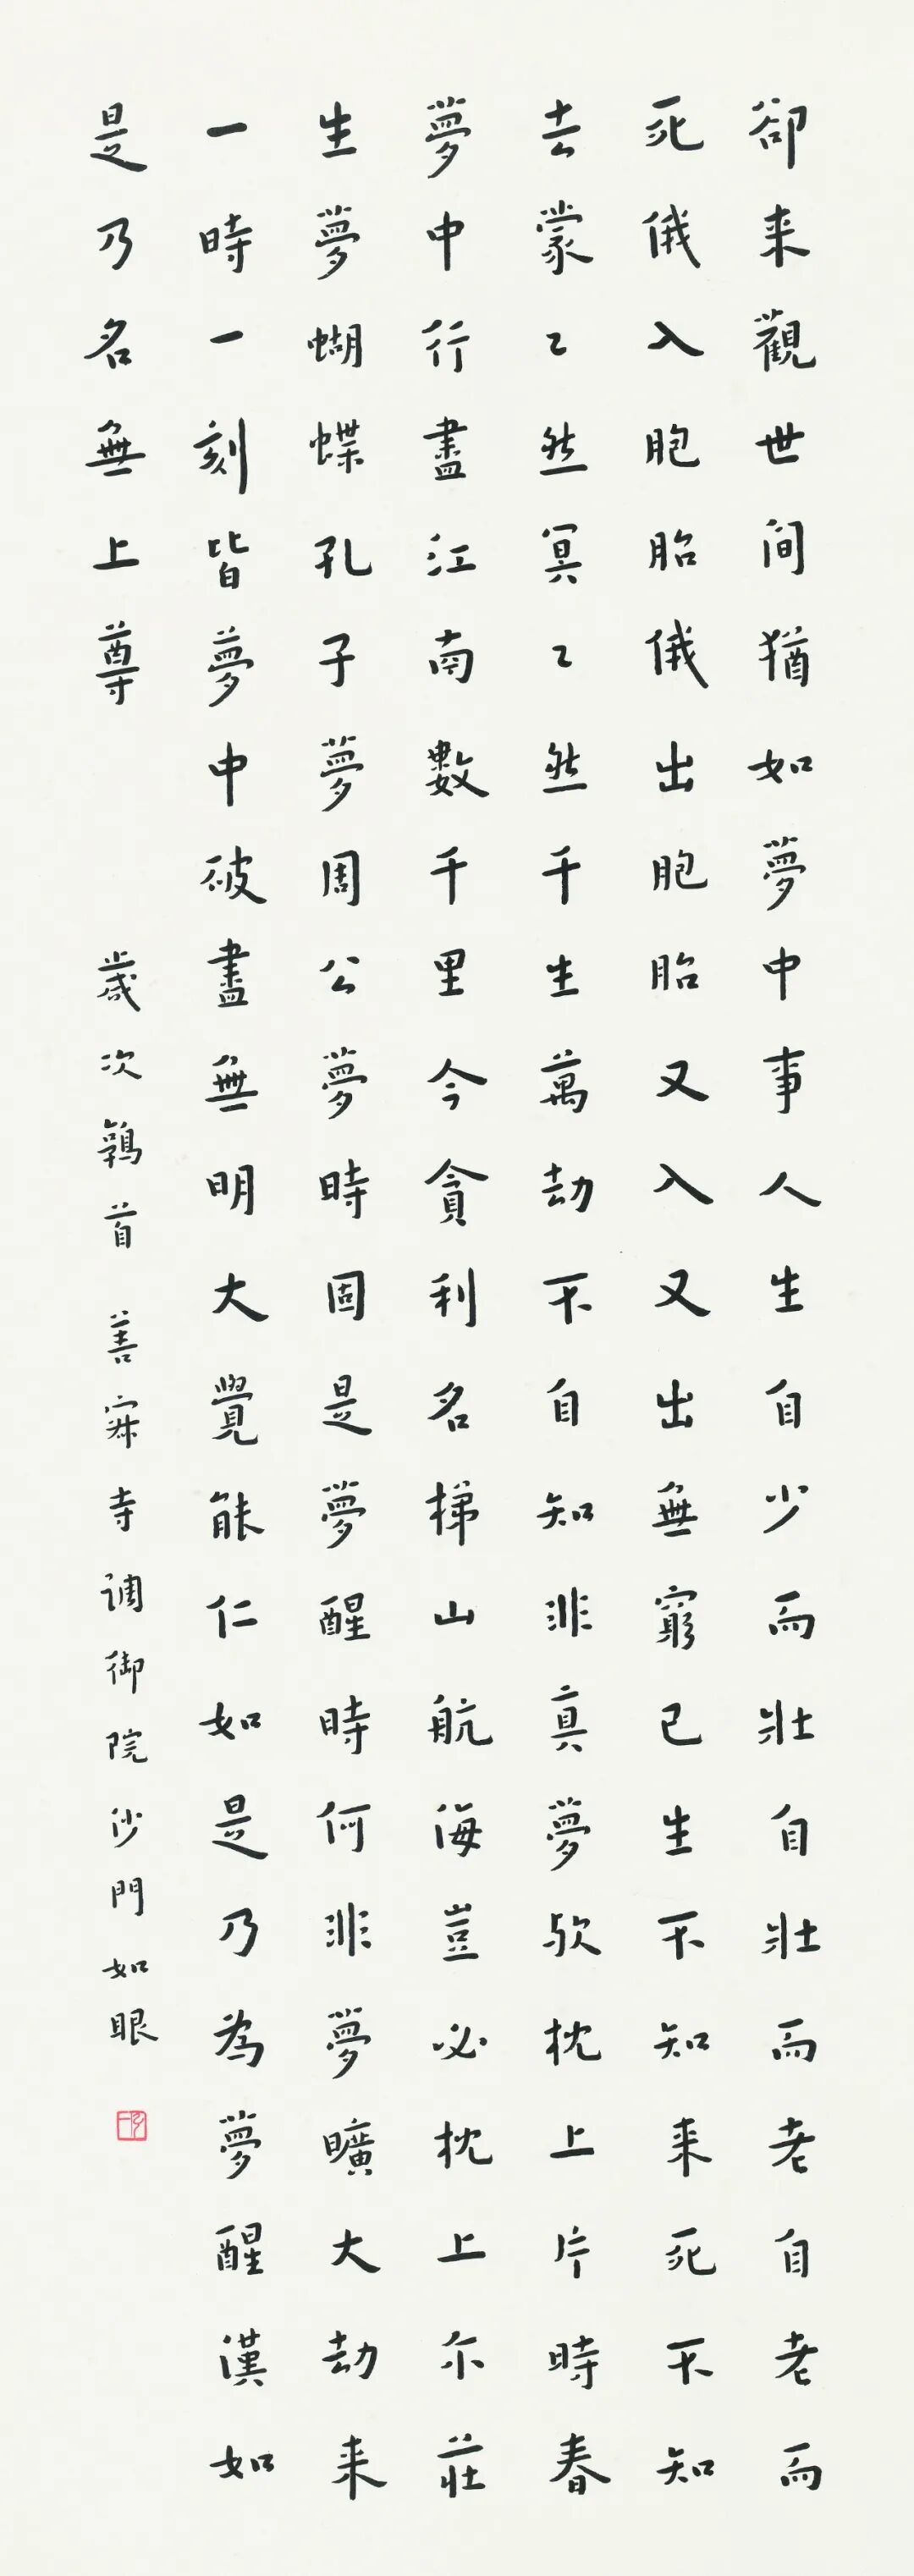 卻来觀世间猶如夢中事人生自少而壯自壯而老自老而
死俄入胞胎俄出胞胎又入又出無窮已生不知来死不知
去蒙〻然冥〻然千生萬劫不自知非真夢歟枕上片時春
夢中行盡江南數千里今貪利名梯山航海豈必枕上尒莊
生夢蝴蝶孔子夢周公夢時固是夢醒時何非夢曠大劫来
一時一刻皆夢中破盡無明大覺能仁如是乃為夢醒漢如
是乃名無上尊
歲次鶉首 善寂寺调御院沙門如眼